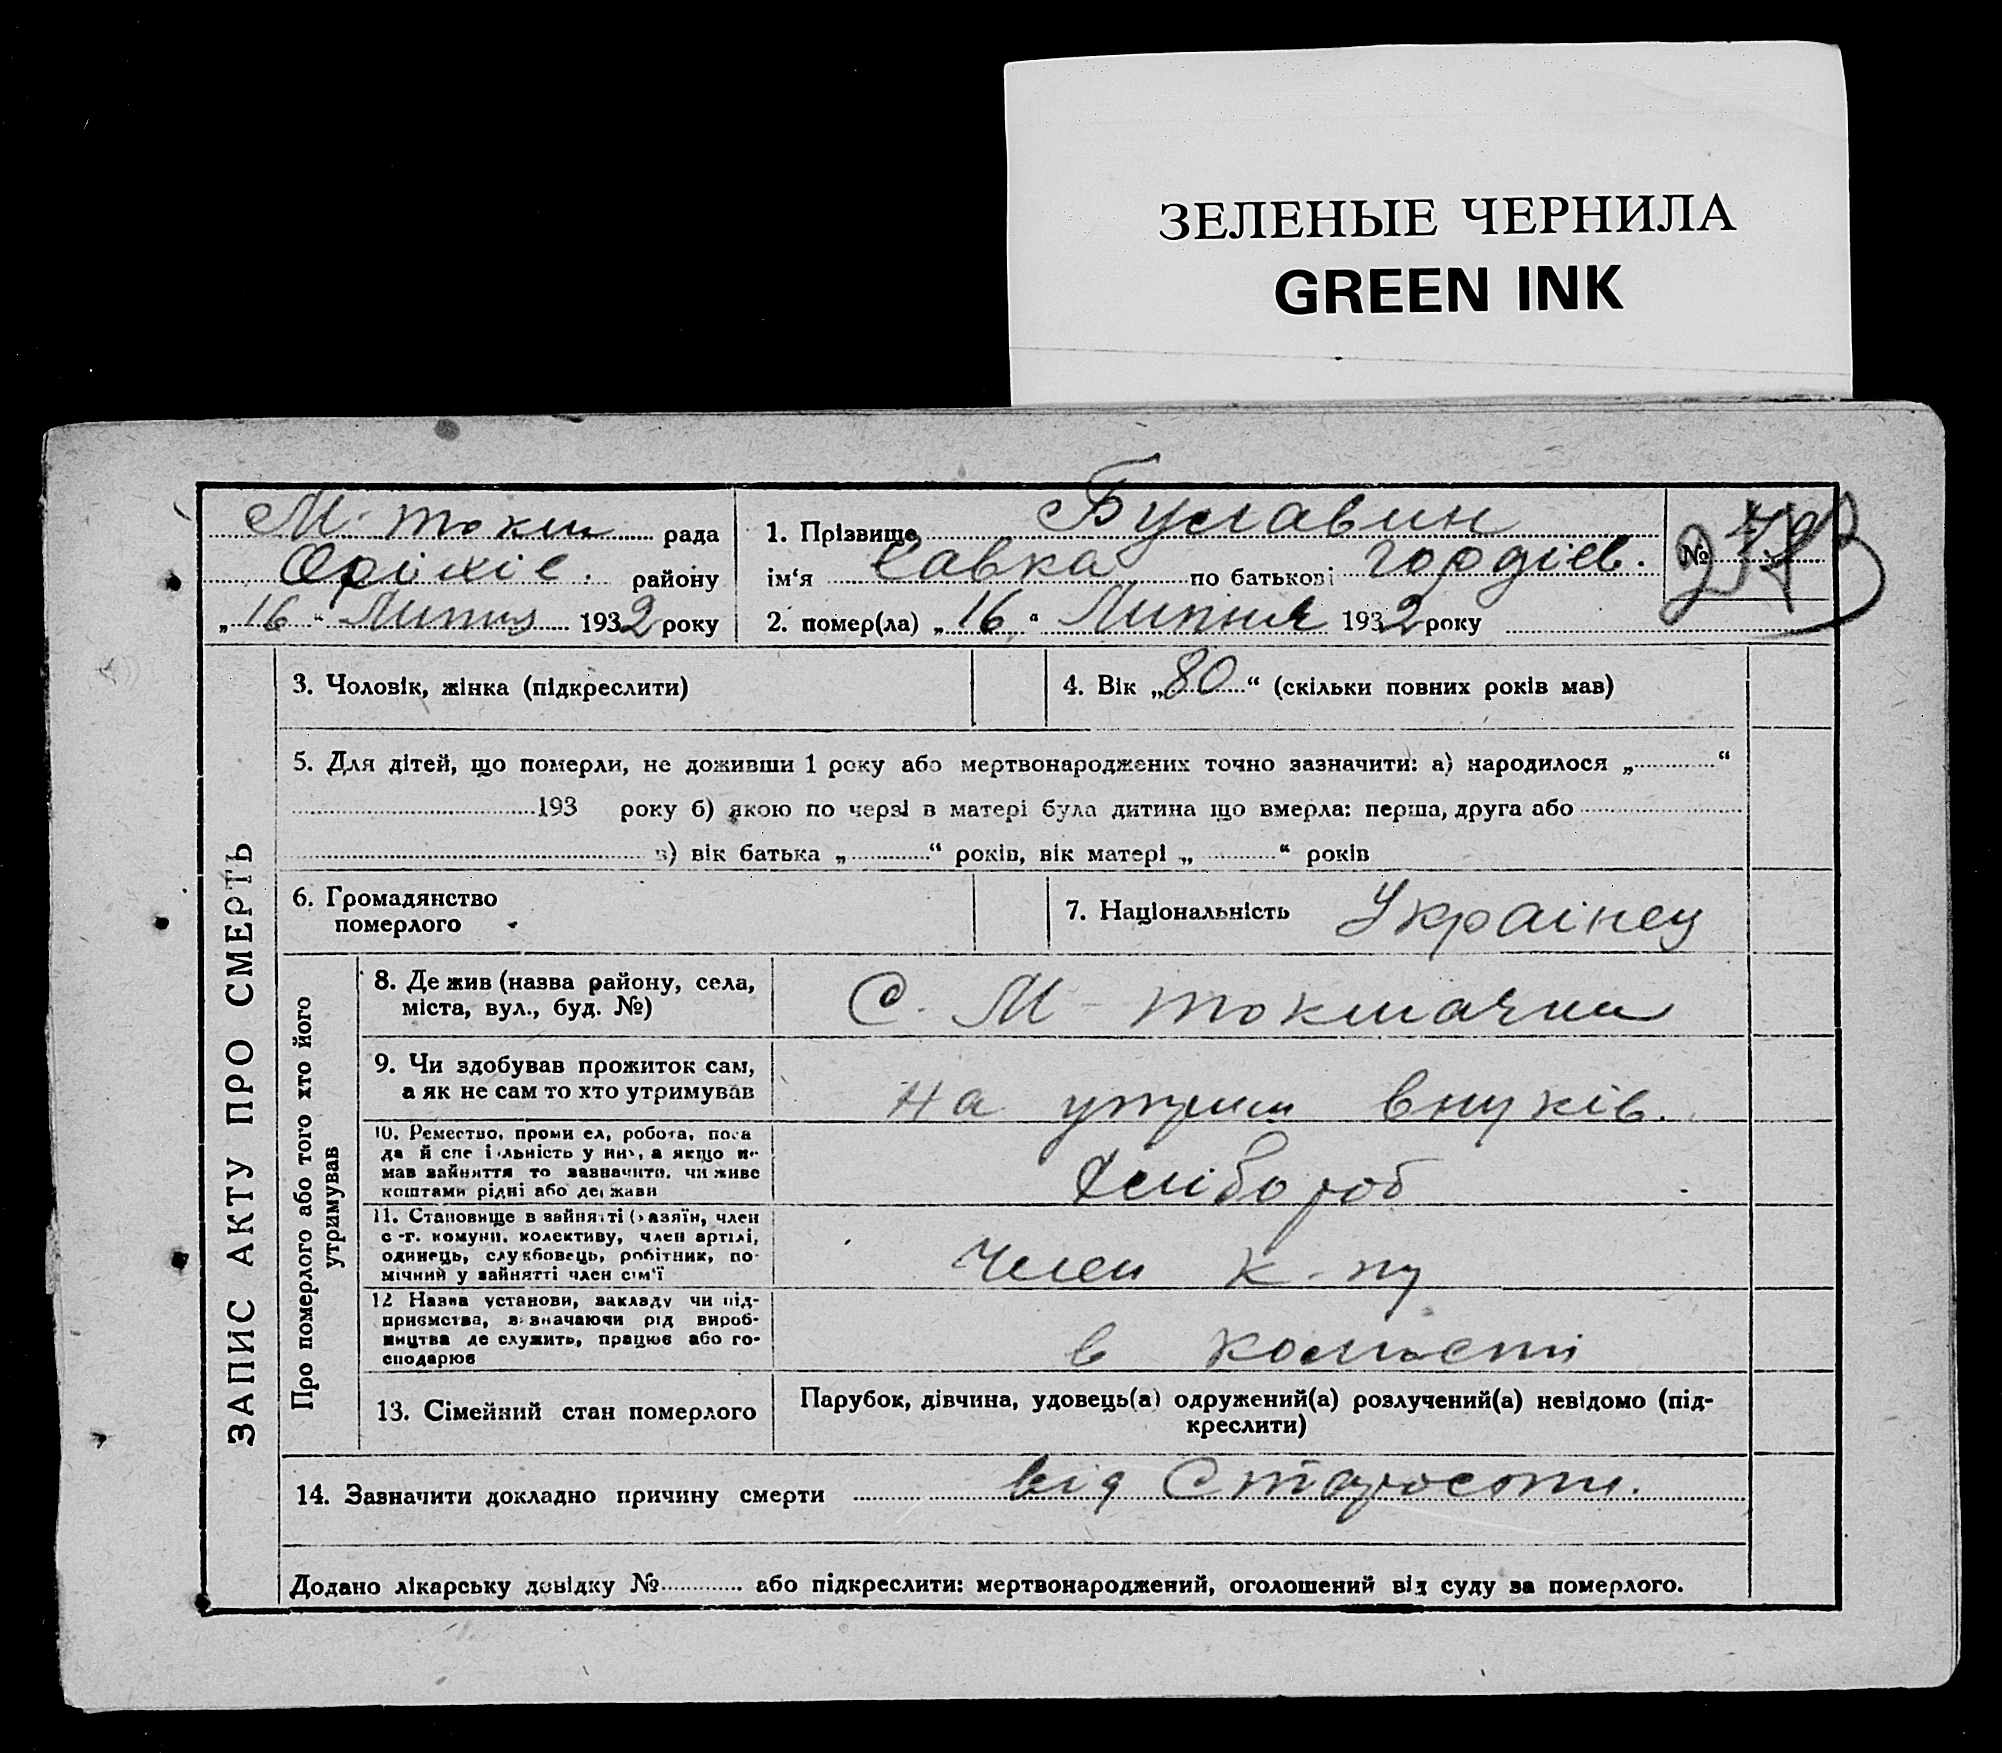 ЗЕЛЕНЫЕ ЧЕРНИЛА
GREEN INK
М-токм рада
Оріхів. району
„16“ Липня 1932 року
1. Прізвище Буславин
ім‘я Савка по батькові Гордієв.
2. помер(ла) „16“ Липня 1932 року
№
ЗАПИС АКТУ ПРО СМЕРТЬ
3. Чоловік, жінка (підкреслити)
4. Вік „80“ (скільки повних років мав)
5. Для дітей, що померли, не доживши 1 року або мертвонароджених точно зазначити: а) народилося „ “
193 року б) якою по черзі в матері була дитина що вмерла: перша, друга або
в) вік батька „ “ років, вік матері „ “ років
6. Громадянство
померлого
7. Національність Украінец
Про померлого або того хто його
утримував
8. Де жив (назва району, села,
міста, вул., буд. №)
С. М-токмачки
9. Чи здобував прожиток сам,
а як не сам то хто утримував
На утрим внуків.
10. Ремество, промисел, робота, поса
да й спеціяльність у них, а якщо не
мав зайняття то зазначити, чи живе
коштами рідні або держави
Хлібороб
11. Становище в зайнятті (хазяїн, член
с.-г. комуни, колективу, член артілі,
одинець, службовець, робітник, по-
мічний у зайнятті член сім‘ї
Член к-пу
12 Назва установи, закладу чи під-
приємства, зазначаючи рід вироб-
ництва де служить, працює або го-
сподарює
в
13. Сімейний стан померлого
Парубок, дівчина, удовець(а) одружений(а) розлучений(а) невідомо (під-
креслити)
14. Зазначити докладно причину смерти від Старости.
Додано лікарську довідку № або підкреслити: мертвонароджений, оголошений від суду за померлого.